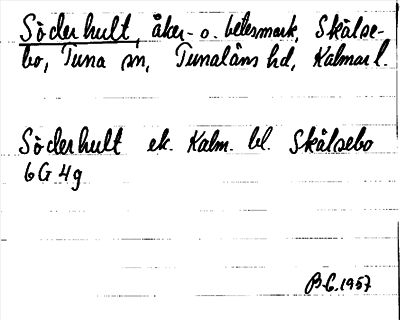 Söderhult, åker- o. betesmark, Skälse-
bo, Tuna sn, Tunaläns hd, Kalmar l.
Söderhult ek. Kalm. bl. Skälsebo
6G 4g
B.G. 1957